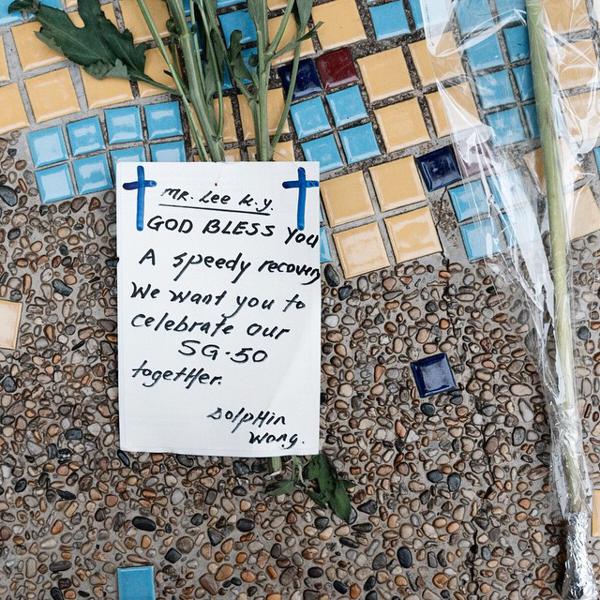 MR. Lee K.Y.
GOD BLESS You
A speedy recovery
We want you to
celebrate our
SG-50
together.
DolpHin
Wong.